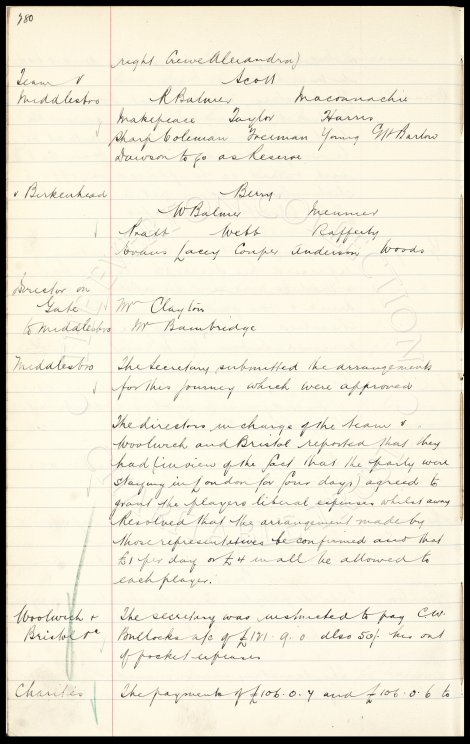 280
right Crewe Alexandra)
Team v Scott
Middlesbro R Balmer Maconnachie
Makepeace Taylor Harris
Sharp Coleman Freeman Young GH Barlow
Dawson to go as Reserve
v Birkenhead Berry
W Balmer Meunier
Pratt Webb Rafferty
Evans Lacey Couper Anderson Woods
Director on
Gate Mr Clayton
to Middlesbro Mr Bainbridge
Middlesbro The Secretary submitted the arrangements
for this journey which were approved
The directors in charge of the team v
Woolwich and Bristol reported that they
had (in view of the fact that the party were
staying in London for four days) agreed to
grant the players liberal expenses whilst away
Resolved that the arrangement made by
those representatives be confirmed and that
£1 per day or £4 in all be allowed to
each player.
Woolwich & The secretary was instructed to pay C.W.
Bristol Bullocks a/c of £121.9.0 also 50/- his out
of pocket expenses
Charities The payments of £106.0.7 and £106.0.6 to